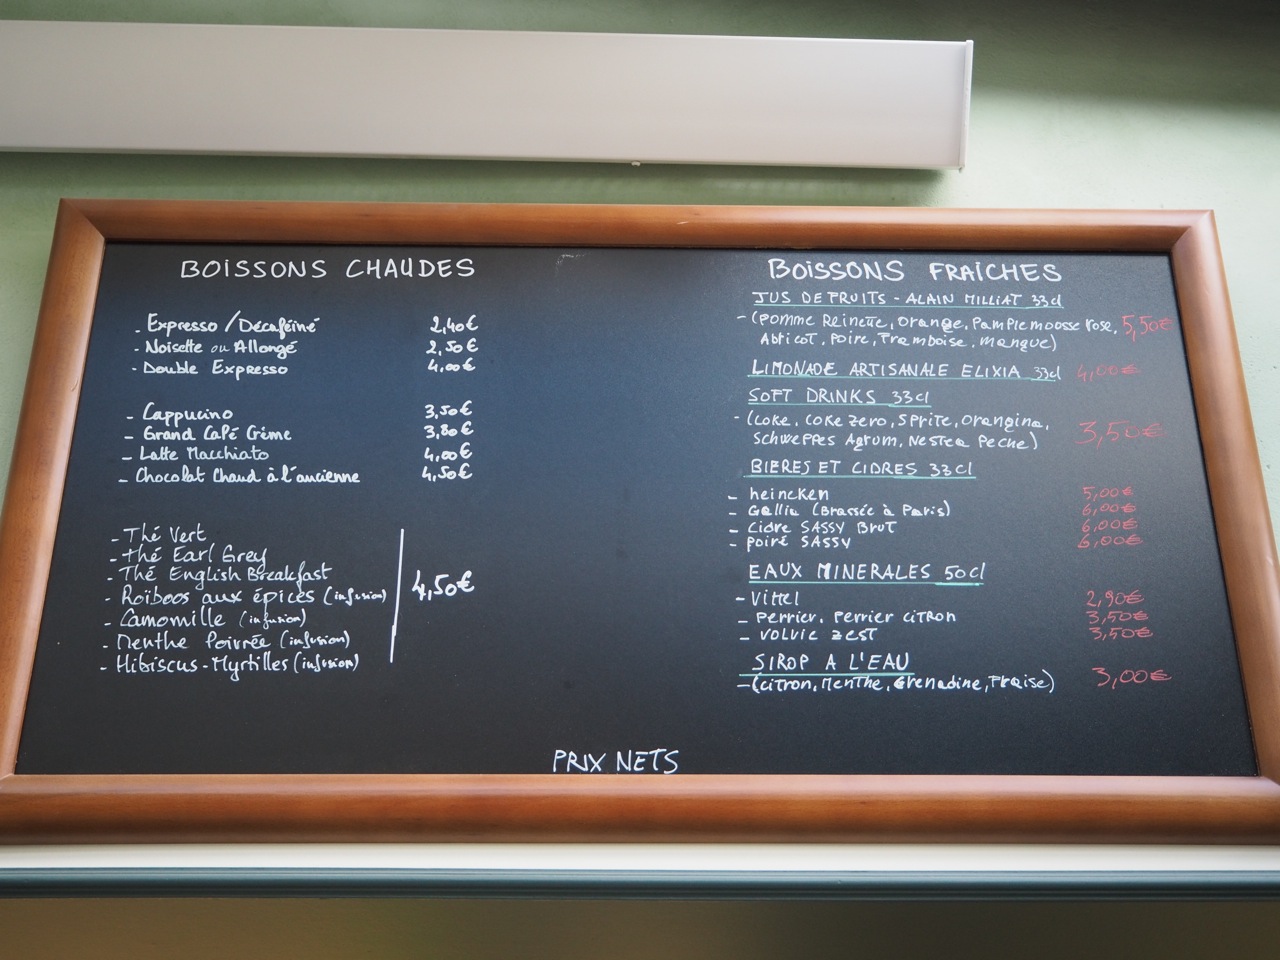 BOISSONS CHAUDES
- Expresso / Décaféiné 2,40€
- Noisette ou Allongé 2,50€
- Double Expresso 4,00€
- Cappucino 3,50€
- Grand Café Crème 3,80€
- Latte Macchiato 4,00€
- Chocolat Chaud à l'ancienne 4,50€
- Thé Vert
- Thé Earl Grey
- Thé English Breakfast
- Roïboos aux épices (infusion)
- Camomille (infusion)
- Menthe Poivrée (infusion)
- Hibiscus-Myrtilles (infusion)
4,50€
BOISSONS FRAICHES
JUS DE FRUITS - ALAIN MILLIAT 33cl
- (Pomme Reinette, Orange, Pamplemoosse rose, 5,50€
Abricot, Poire, Framboise, mangue)
LIMONADE ARTISANALE ELIXIA 33cl 4,00€
SOFT DRINKS 33cl
- (Coke, Coke zero, Sprite, Orangina,
Schweppes Agrum, Nestea Peche) 3,50€
BIERES ET CIDRES 33cl
- heineken 5,00€
- Gallia (Brassée à Paris) 6,00€
- Cidre SASSY BRUT 6,00€
- Poiré SASSY 6,00€
EAUX MINERALES 50cl
- Vittel 2,90€
- Perrier, Perrier citron 3,50€
- Volvic zest 3,50€
SIROP A L'EAU
- (Citron, Menthe, Grenadine, Fraise) 3,00€
PRIX NETS